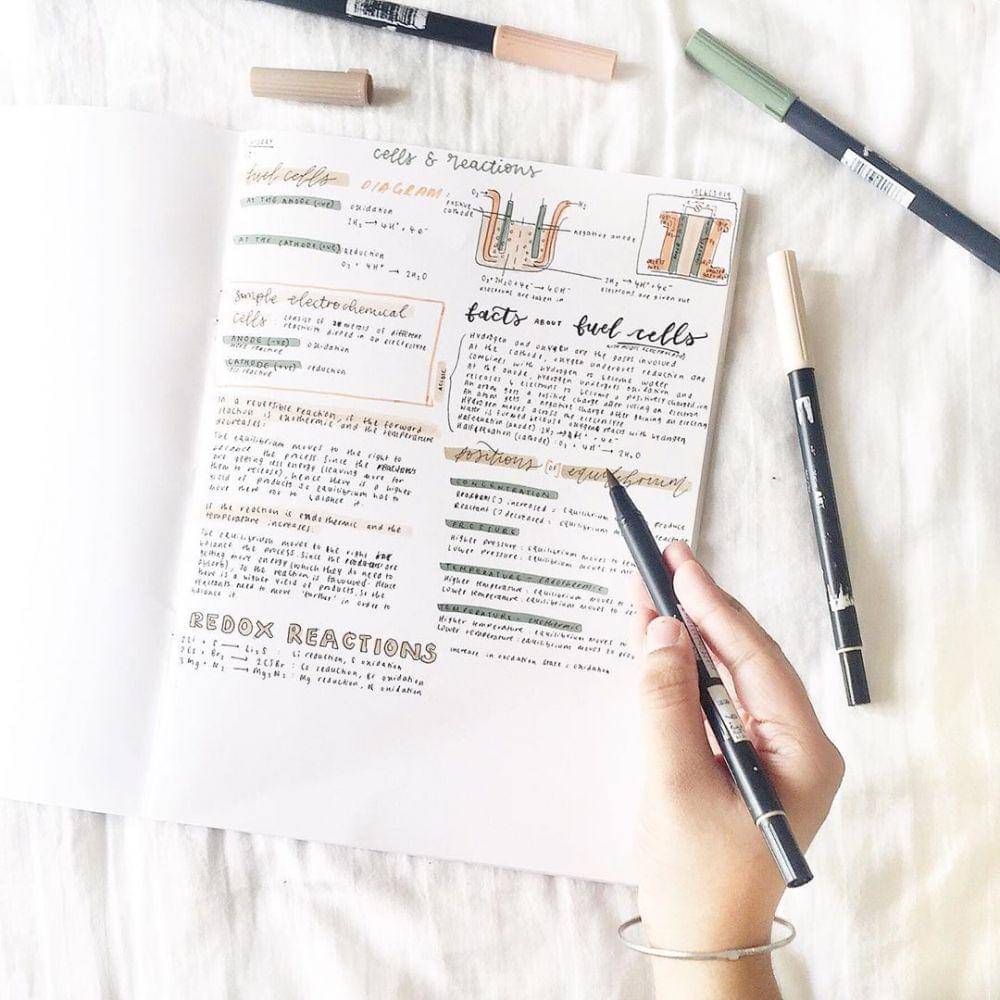 cells & reactions
fuel cells
AT THE ANODE (-ve) oxidation
2H₂ → 4H⁺ + 4e⁻
AT THE CATHODE (+ve) reduction
O₂ + 4H⁺ → 2H₂O
simple electrochemical
cells: consist of 2 metals of different
reactivity dipped in an electrolyte
ANODE (-ve) oxidation
more reactive
CATHODE (+ve) reduction
less reactive
In a reversible reaction, if the forward
reaction is exothermic and the temperature
decreases:
The equilibrium moves to the right to
balance the process. Since the reactions
are getting less energy (leaving more for
them to release), hence there is a higher
yield of products so equilibrium has to
move there too to balance it.
If the reaction is endothermic and the
temperature increases:
The equilibrium moves to the right
balance the process. Since the are
getting more energy (which they do need to
absorb), so the reaction is favoured. Hence
there is a higher yield of products. So the
reactants need to move 'further' in order to
balance it.
REDOX REACTIONS
2Li + S → Li₂S : Li reduction, S oxidation
2Cs + Br₂ → 2CsBr : Cs reduction, Br oxidation
3Mg + N₂ → Mg₃N₂ : Mg reduction, N oxidation
DIAGRAM:
O₂
H₂
positive
cathode
negative anode
O₂ + 2H₂O + 4e⁻ → 4OH⁻
electrons are taken in
2H₂ → 4H⁺ + 4e⁻
electrons are given out
facts ABOUT fuel cells
ACIDIC
Hydrogen and oxygen are the gases involved
At the cathode, oxygen undergoes reduction and
combines with hydrogen to become water
At the anode, hydrogen undergoes oxidation and
releases 4 electrons to become a positively charged ion
An atom gets a positive charge after losing an electron
An atom gets a negative charge after gaining an electron
Hydrogen moves across the electrolyte
Water is formed because oxygen reacts with hydrogen
Half equation (anode): 2H₂ → 4H⁺ + 4e⁻
Half equation (cathode): O₂ + 4H⁺ → 2H₂O
positions [OF] equilibrium
CONCENTRATION
Reactant [ ] increased = equilibrium produce
Reactant [ ] decreased = equilibrium
PRESSURE
Higher pressure: equilibrium moves to
Lower pressure: equilibrium moves to
TEMPERATURE - ENDOTHERMIC
Higher temperature: equilibrium moves to
Lower temperature: equilibrium moves to
TEMPERATURE - EXOTHERMIC
Higher temperature: equilibrium moves
Lower temperature: equilibrium moves to
increase in oxidation state = oxidation